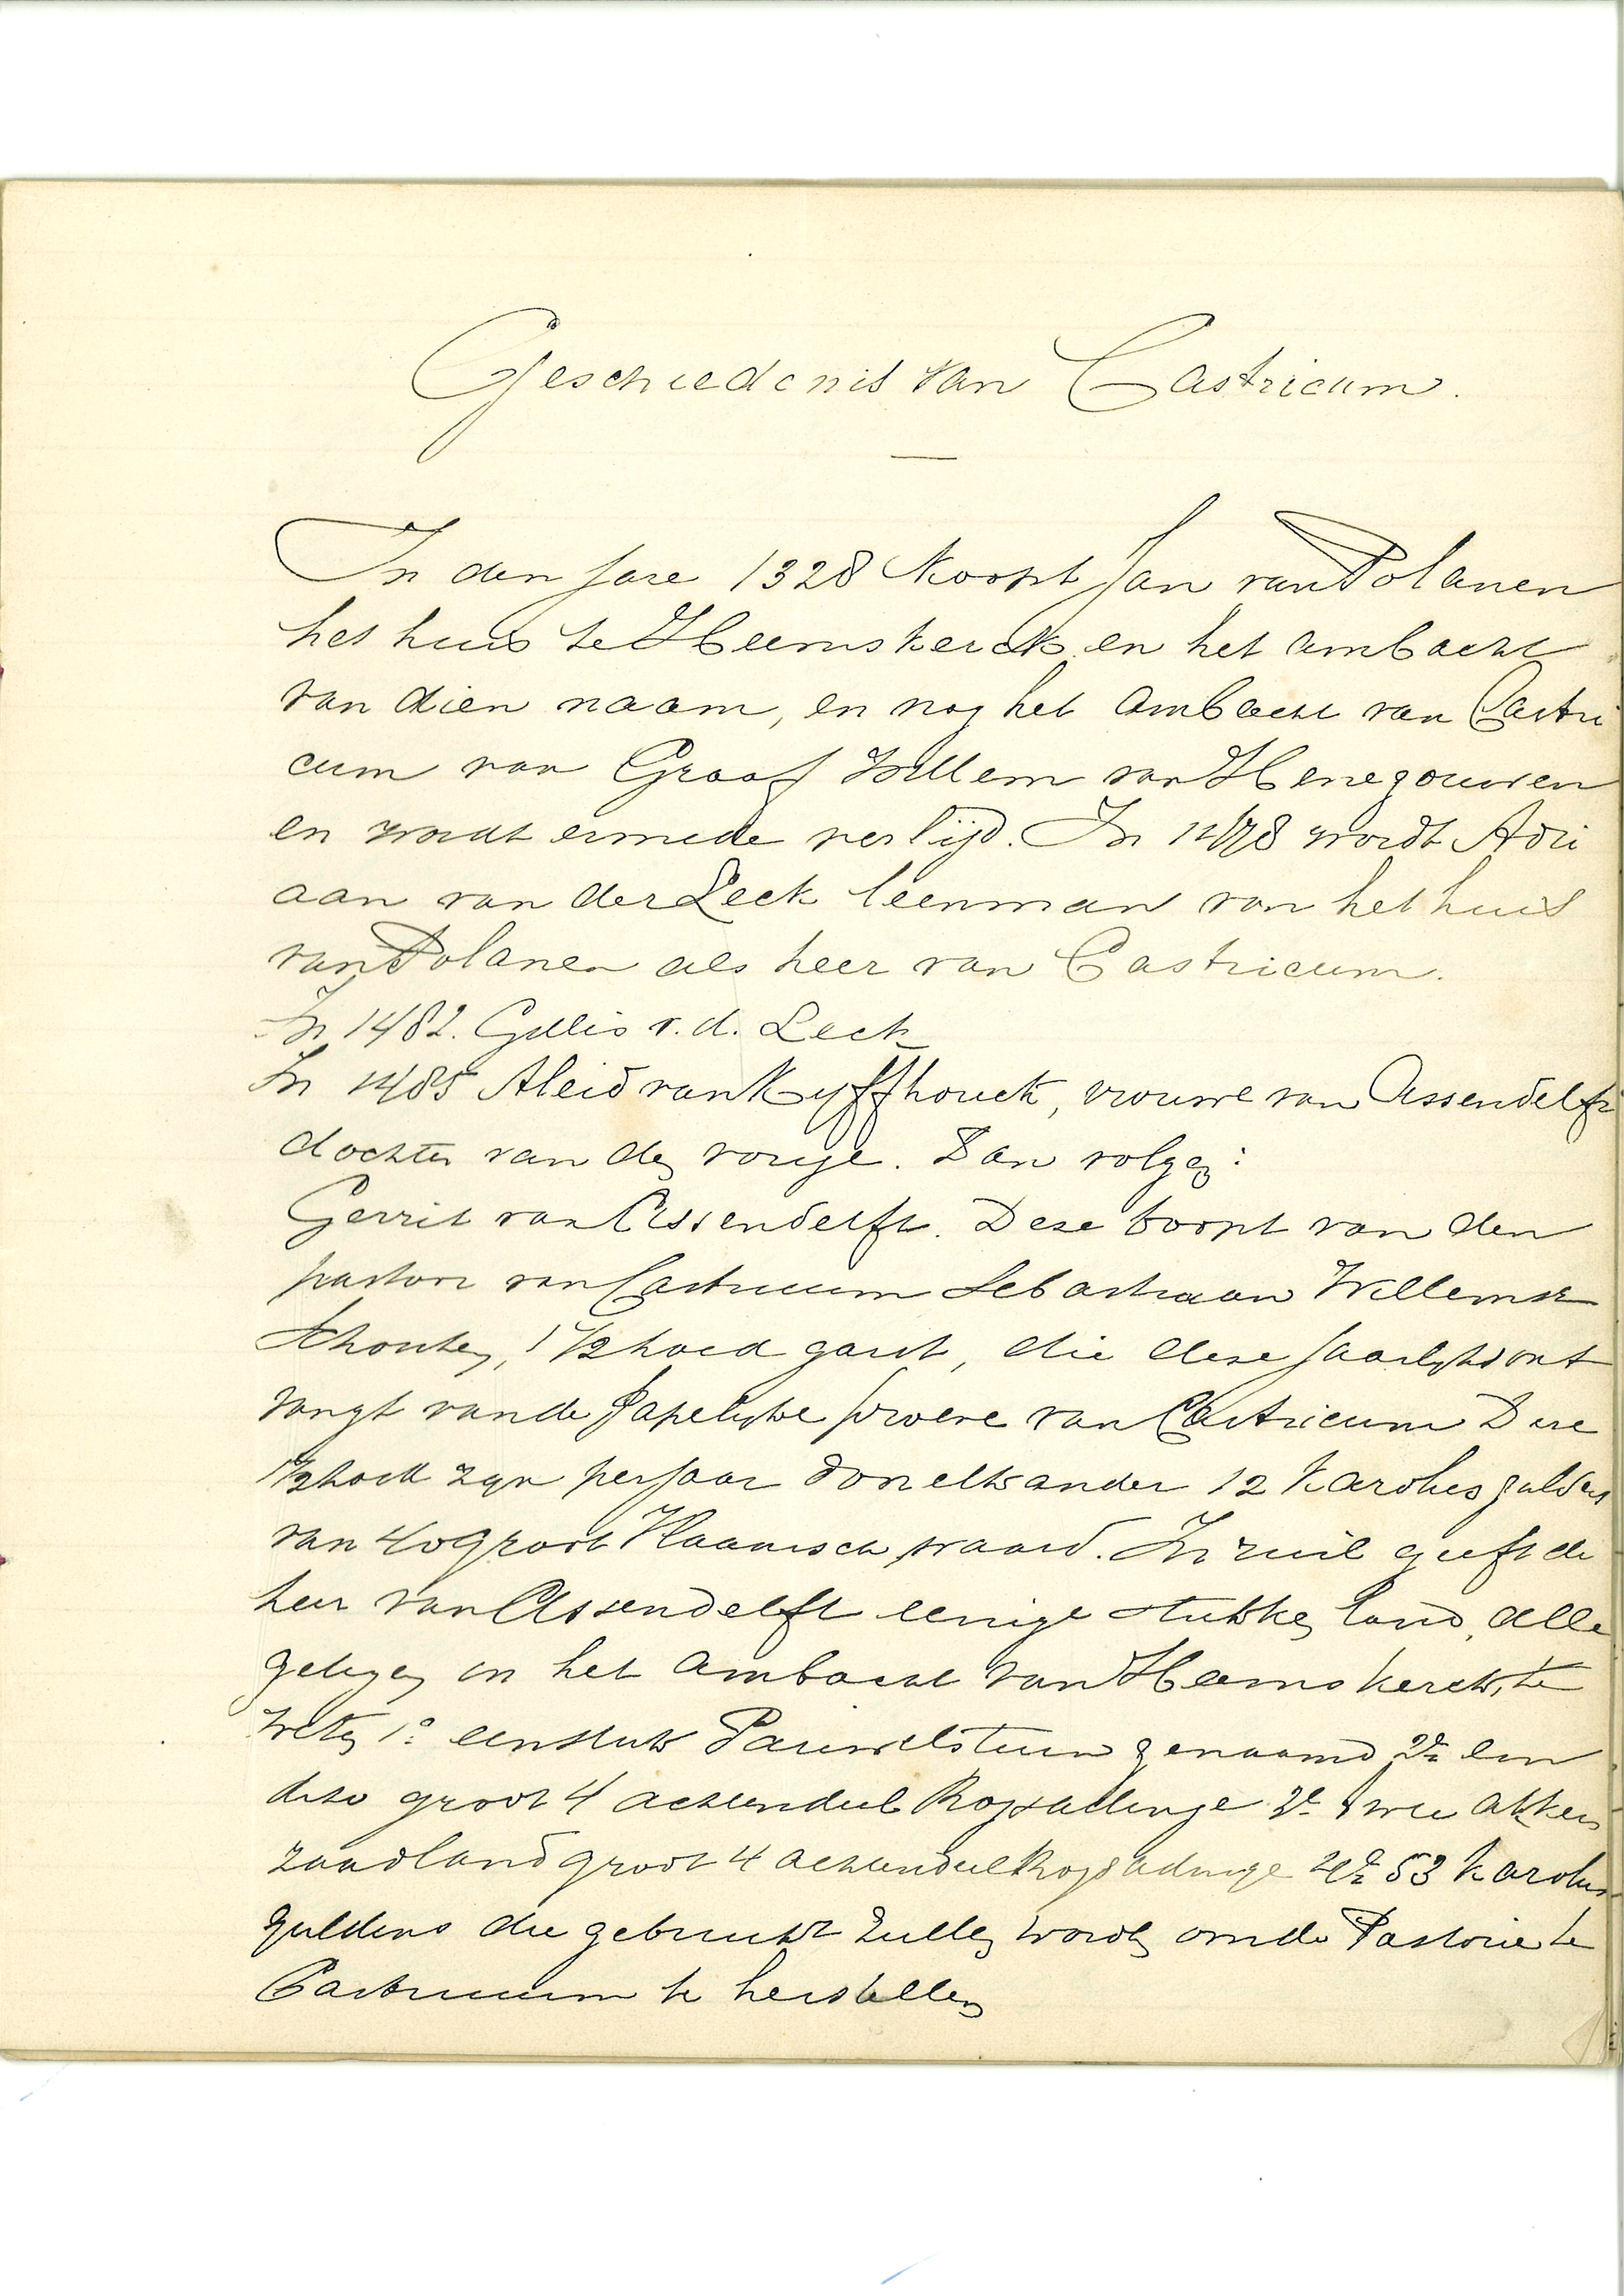 Geschiedenis van Castricum.
In den jare 1328 koopt Jan van Polanen
het huis te Heemskerck en het ambacht
van dien naam, en nog het ambacht van Castri
cum van Graaf Willem van Henegouwen
en wordt ermede verlijd. In 1478 wordt Adri
aan van der Leck leenman van het huis
van Polanen als heer van Castricum.
In 1482. Gillis v. d. Leck
In 1485 Aleid van Kyffhouck, vrouwe van Assendelft
dochter van den vorige. Dan volgen:
Gerrit van Assendelft. Deze koopt van den
pastoor van Castricum Sebastiaan Willemsz
Schouten, 1 1/2 hoed garst, die deze jaarlijks ont
vangt van de Papelijke prove van Castricum Deze
1 1/2 hoed zijn per jaar door elkander 12 Karolus guldens
van 40 groot Vlaamsch waard. In ruil geeft de
heer van Assendelft eenige stukken land, alle
gelegen in het ambacht van Heemskerck, te
weten 1o een stuk Pauwelstuin genaamd 2e een
dito groot 4 achtendeel 3e twee akkers
zaadland groot 4 achtendeel 4e 53 Karolus
guldens die gebruikt zullen worden om de Pastorie te
Castricum te herstellen